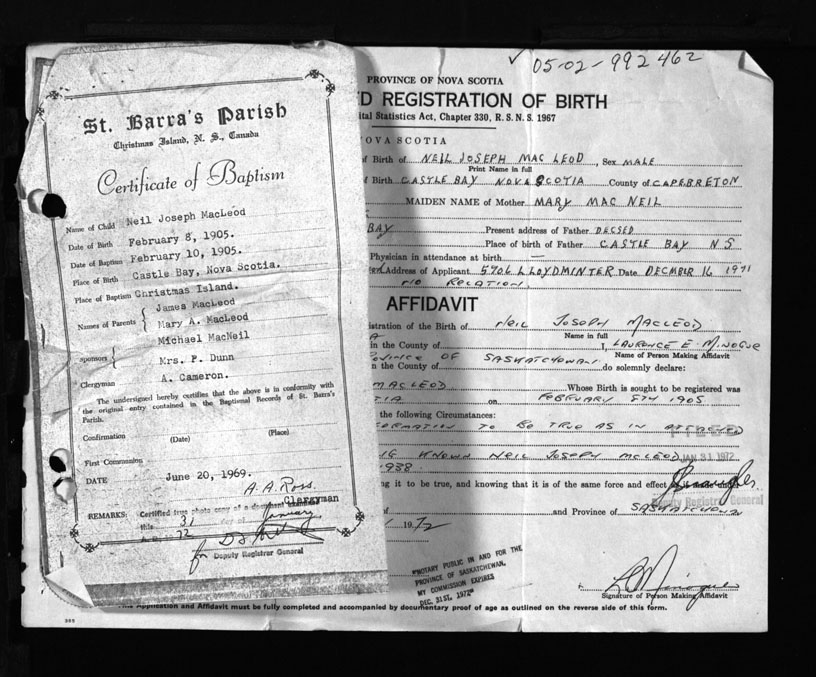 St. Barra's Parish
Christmas Island, N. S., Canada
Certificate of Baptism
Name of Child Neil Joseph MacLeod
Date of Birth February 8, 1905.
Date of Baptism February 10, 1905.
Place of Birth Castle Bay, Nova Scotia.
Place of Baptism Christmas Island.
Names of Parents { James MacLeod
Mary A. MacLeod
Sponsors { Michael MacNeil
Mrs. P. Dunn
Clergyman A. Cameron.
The undersigned hereby certifies that the above is in conformity with
the original entry contained in the Baptismal Records of St. Barra's
Parish.
Confirmation
(Date) (Place)
First Communion
DATE June 20, 1969.
A. A. Ross.
Clergyman
REMARKS: Certified true photo copy of a document examined
this 31 day of January
A.D. 1972
for Deputy Registrar General
05-02-992462
PROVINCE OF NOVA SCOTIA
ED REGISTRATION OF BIRTH
ital Statistics Act, Chapter 330, R. S. N. S. 1967
NOVA SCOTIA
of Birth of NEIL JOSEPH MAC LEOD, Sex MALE
Print Name in full
f Birth CASTLE BAY NOVA SCOTIA County of CAPEBRETON
MAIDEN NAME of Mother MARY MAC NEIL
BAY Present address of Father DECSED
Place of birth of Father CASTLE BAY N S
Physician in attendance at birth —
Address of Applicant 5706 LLOYDMINTER Date DECMBER 16 1971
NO RELATION
AFFIDAVIT
istration of the Birth of NEIL JOSEPH MACLEOD
Name in full
in the County of I, LAURENCE E. MINOGUE
PROVINCE OF SASKATCHOWAN Name of Person Making Affidavit
n the County of do solemnly declare:
MACLEOD Whose Birth is sought to be registered was
TIA on FEBRUARY 8TH 1905
the following Circumstances:
FORMATION TO BE TRUE AS IN ATTACHED
KNOWN NEIL JOSEPH MCLEOD JAN 31 1972
1938
ing it to be true, and knowing that it is of the same force and effect
Deputy Registrar General
of and Province of SASKATCHOWAN
1972
"NOTARY PUBLIC IN AND FOR THE
PROVINCE OF SASKATCHEWAN.
MY COMMISSION EXPIRES
DEC. 31ST, 1972"
Signature of Person Making Affidavit
This Application and Affidavit must be fully completed and accompanied by documentary proof of age as outlined on the reverse side of this form.